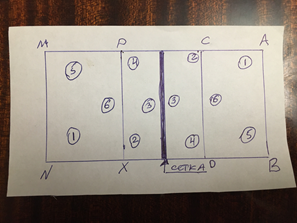 M P C A
4 2 1
5
6 3 3 6
1 2 4 5
N X СЕТКА D B